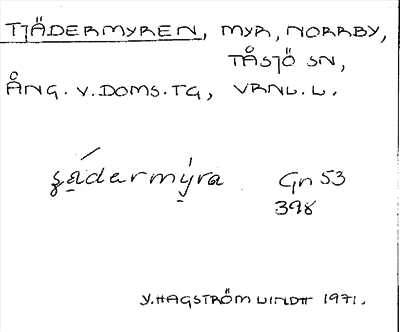 TJÄDERMYREN, MYR, NORRBY,
TÅSJÖ SN,
ÅNG. V. DOMS. TG, VRNL. L.
ʒá̲dermỳ̲ra Gn 53
398
Y. HAGSTRÖM LINDH 1971.